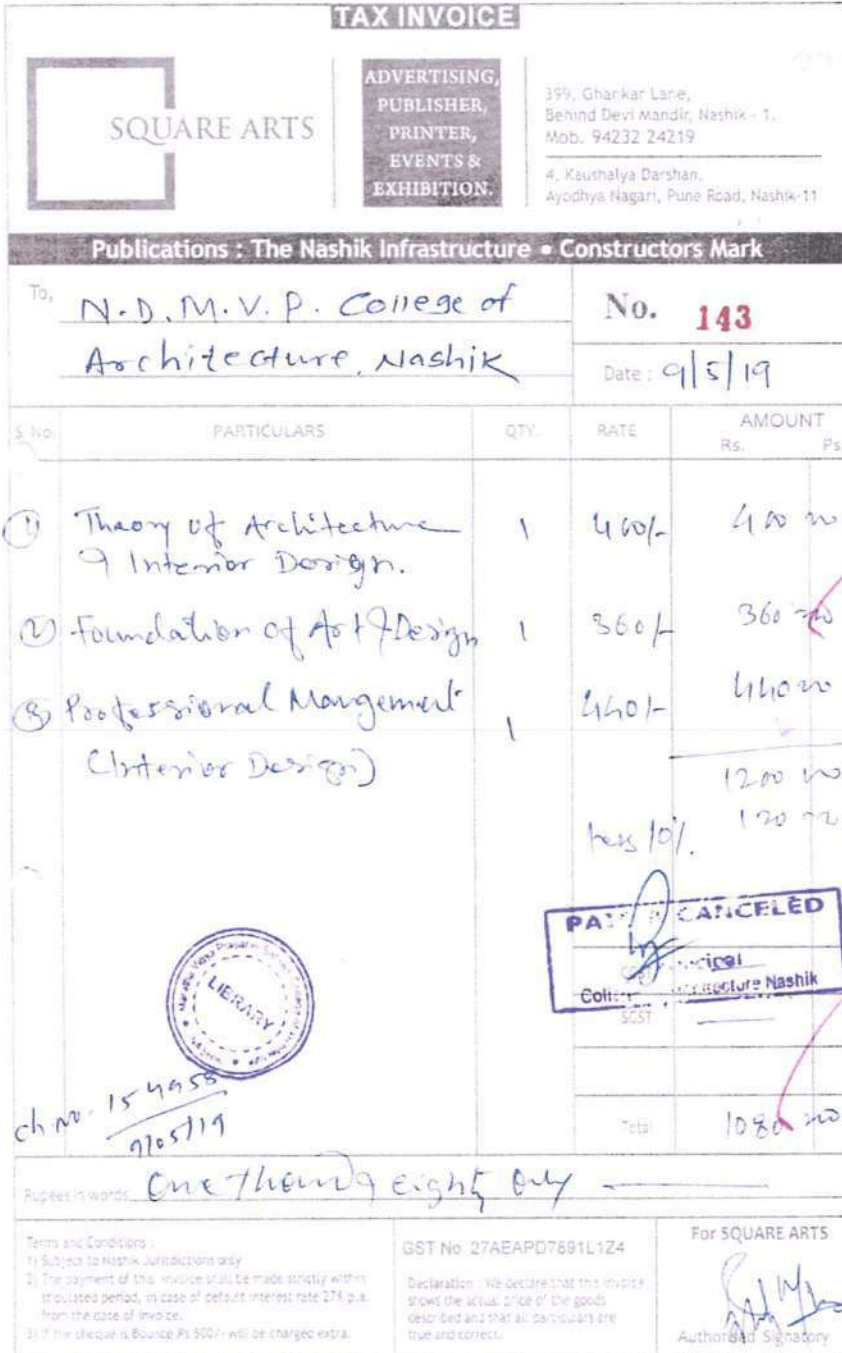 TAX INVOICE
SQUARE ARTS
ADVERTISING,
PUBLISHER,
PRINTER,
EVENTS &
EXHIBITION.
399, Ghankar Lane,
Behind Devi Mandir, Nashik - 1.
Mob. 94232 24219
4, Kaushalya Darshan,
Ayodhya Nagari, Pune Road, Nashik-11
Publications : The Nashik Infrastructure • Constructors Mark
To, N.D.M.V.P. College of
Architecture, Nashik
No. 143
Date : 9/5/19
S.No. PARTICULARS QTY. RATE AMOUNT
Rs. Ps.
① Theory of Architecture 1 400/- 400 00
& Interior Design.
② Foundation of Art & Design 1 360/- 360 00
③ Professional Mangement 1 440/- 440 00
(Interior Design)
1200 00
less 10%. 120 00
CANCELED
Nashik
SGST
LIBRARY
ch. no. 154958
9/05/19
Total 1080 00
Rupees in words One Thound & eighty only
Terms and Conditions :
1) Subject to Nashik Jurisdictions only
2) The payment of this invoice shall be made strictly within
stipulated period, in case of default interest rate 27% p.a.
from the date of invoice.
3) If the cheque is Bounce Rs 500/- will be charged extra.
GST No 27AEAPD7691L1Z4
Declaration : We declare that this invoice
shows the actual price of the goods
described and that all particulars are
true and correct.
For SQUARE ARTS
Authorised Signatory